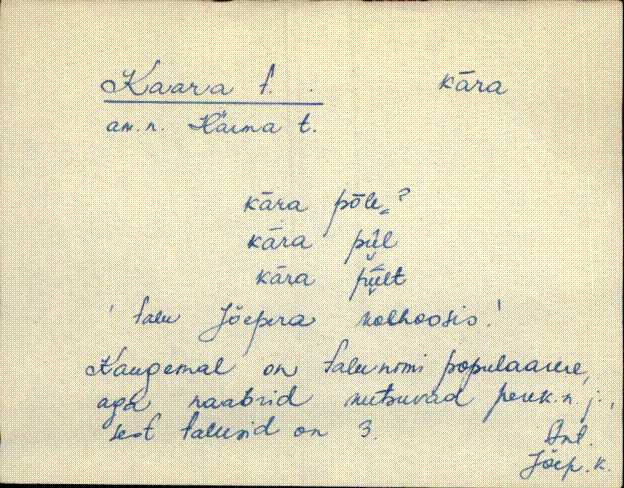 Kaara t. kāra
am.n. Härma t.
kāra põle?
kāra pǖl
kāra pǖlt
'talu Jõepera kolhoosis.'
Kaugemal on talu nimi populaarne,
aga naabrid kutsuvad perek.n. j.,
sest talusid on 3. Ant.
Jõep. k.